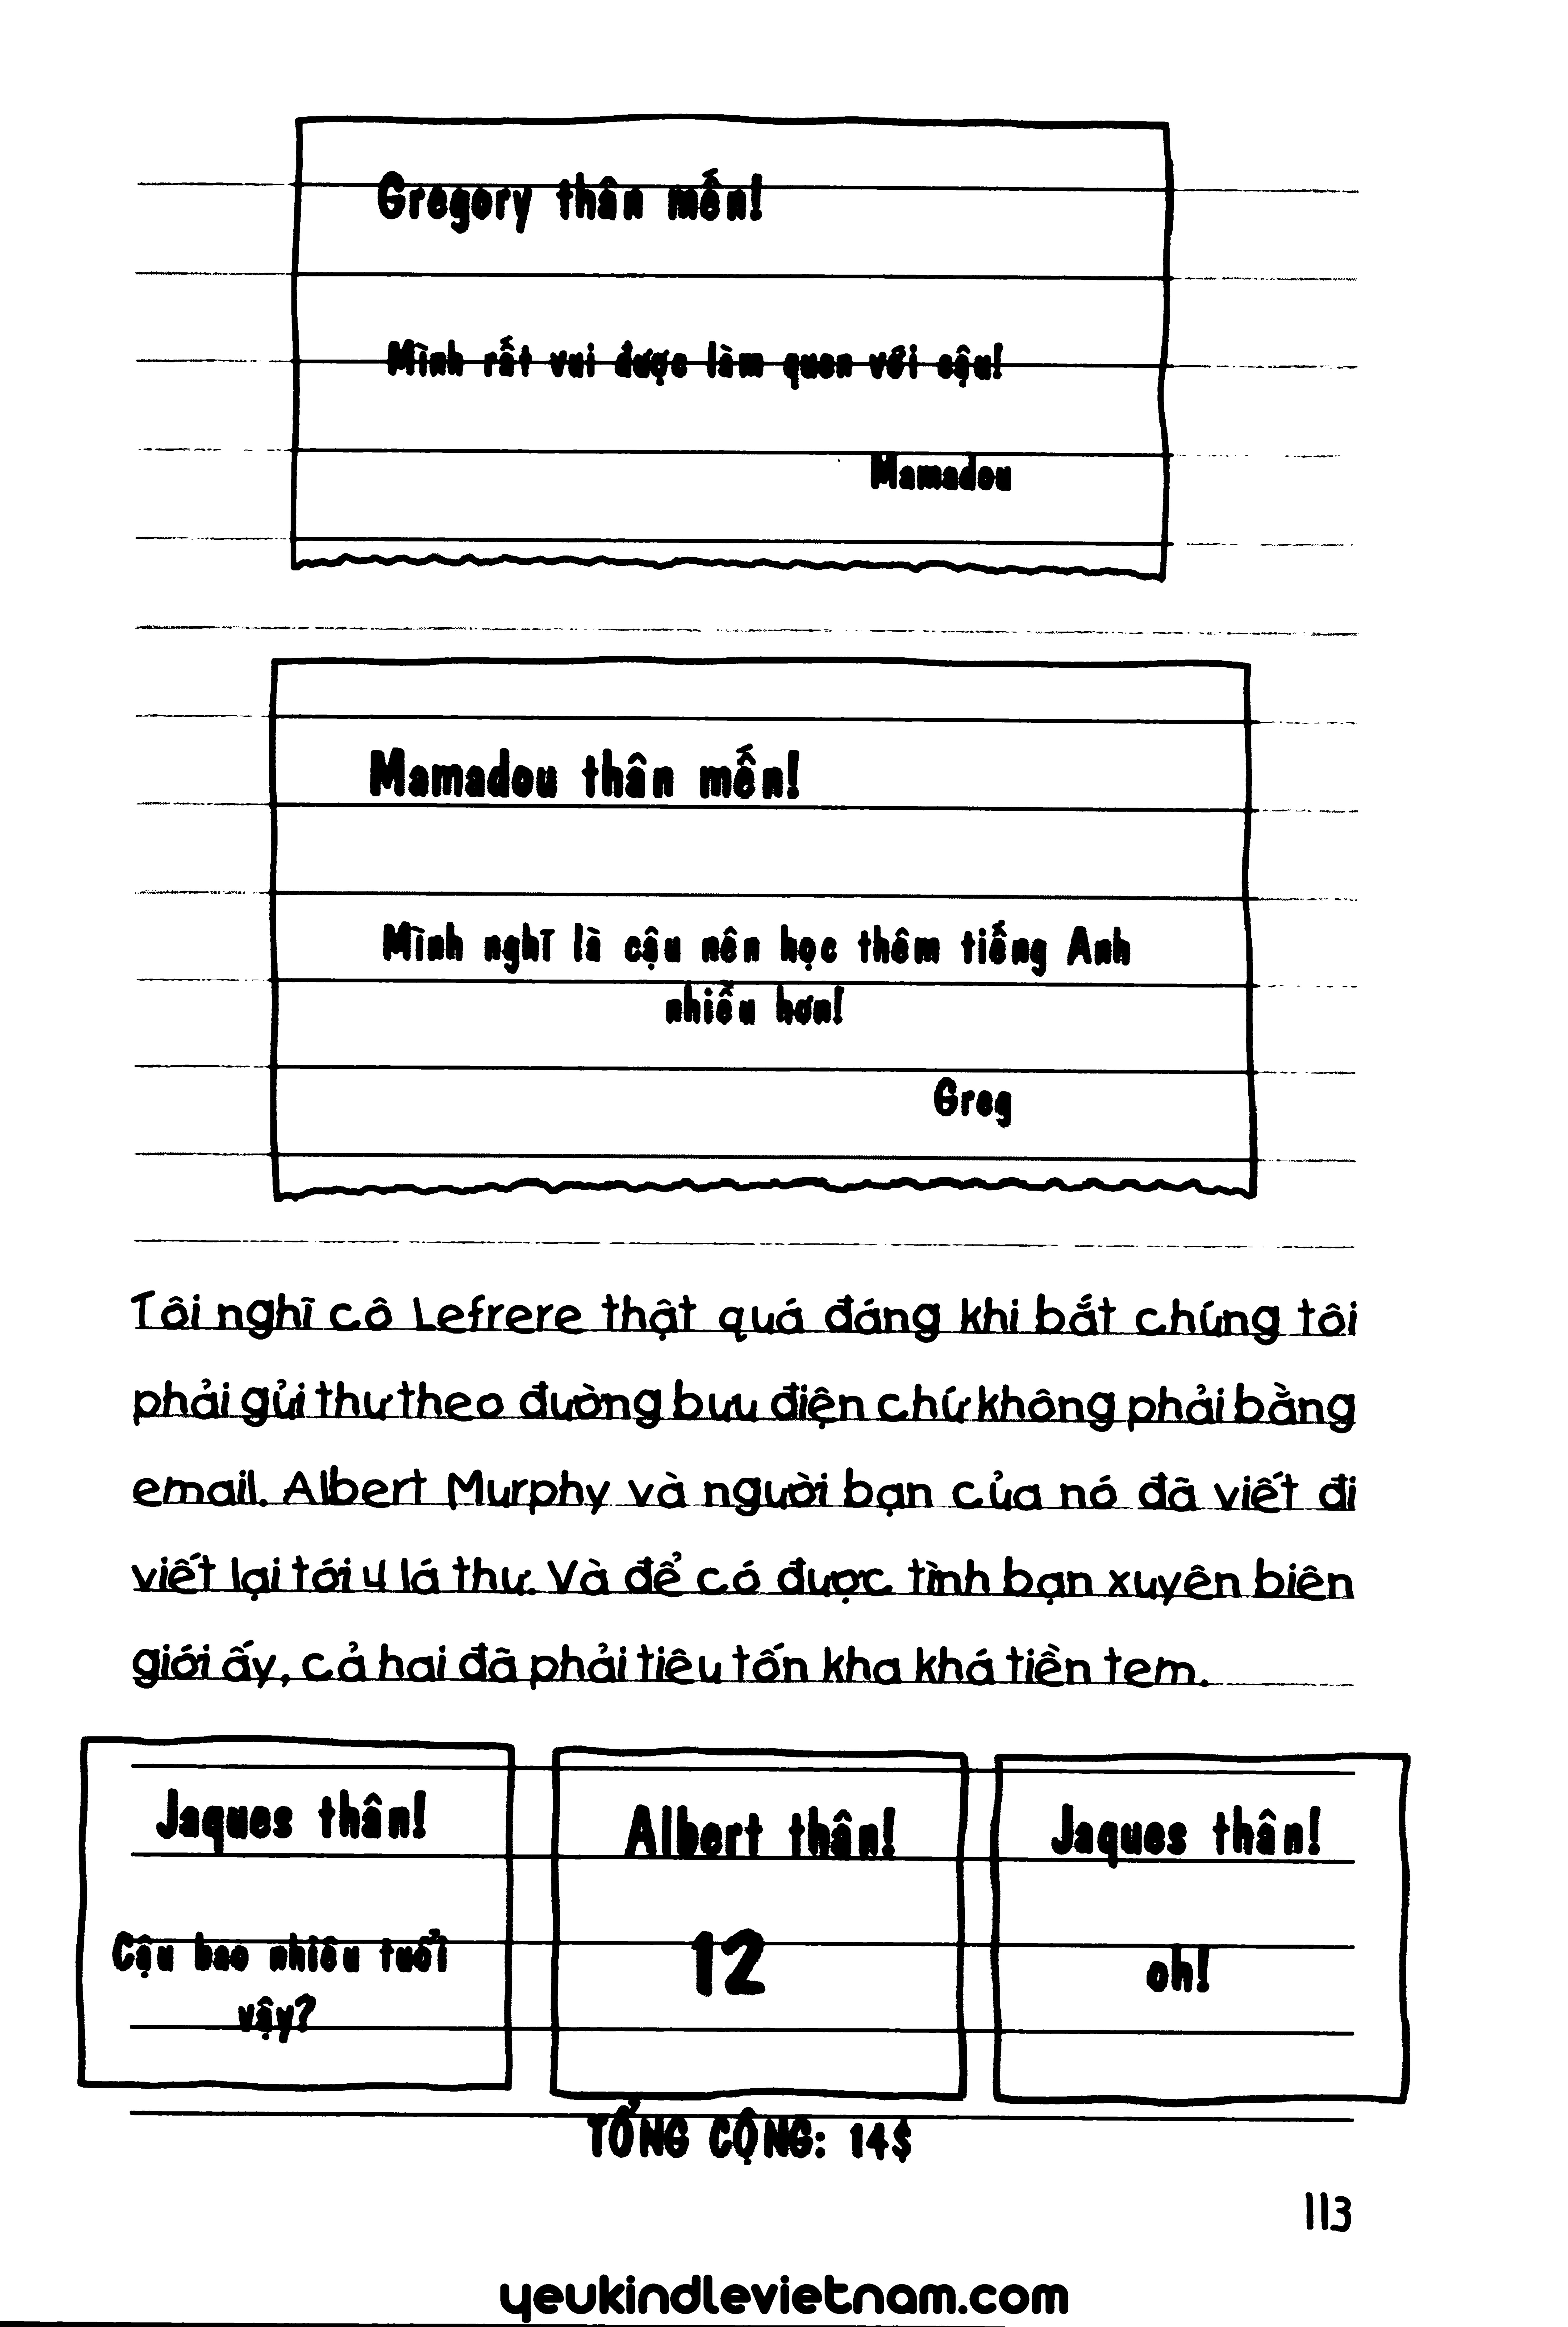 Gregory thân mến!
Mình rất vui được làm quen với cậu!
Mamadou
Mamadou thân mến!
Mình nghĩ là cậu nên học thêm tiếng Anh
nhiều hơn!
Greg
Tôi nghĩ cô Lefrere thật quá đáng khi bắt chúng tôi
phải gửi thư theo đường bưu điện chứ không phải bằng
email. Albert Murphy và người bạn của nó đã viết đi
viết lại tới 4 lá thư. Và để có được tình bạn xuyên biên
giới ấy, cả hai đã phải tiêu tốn kha khá tiền tem.
Jaques thân!
Cậu bao nhiêu tuổi
vậy?
Albert thân!
12
Jaques thân!
oh!
TỔNG CỘNG: 14$
113
yeukindlevietnam.com